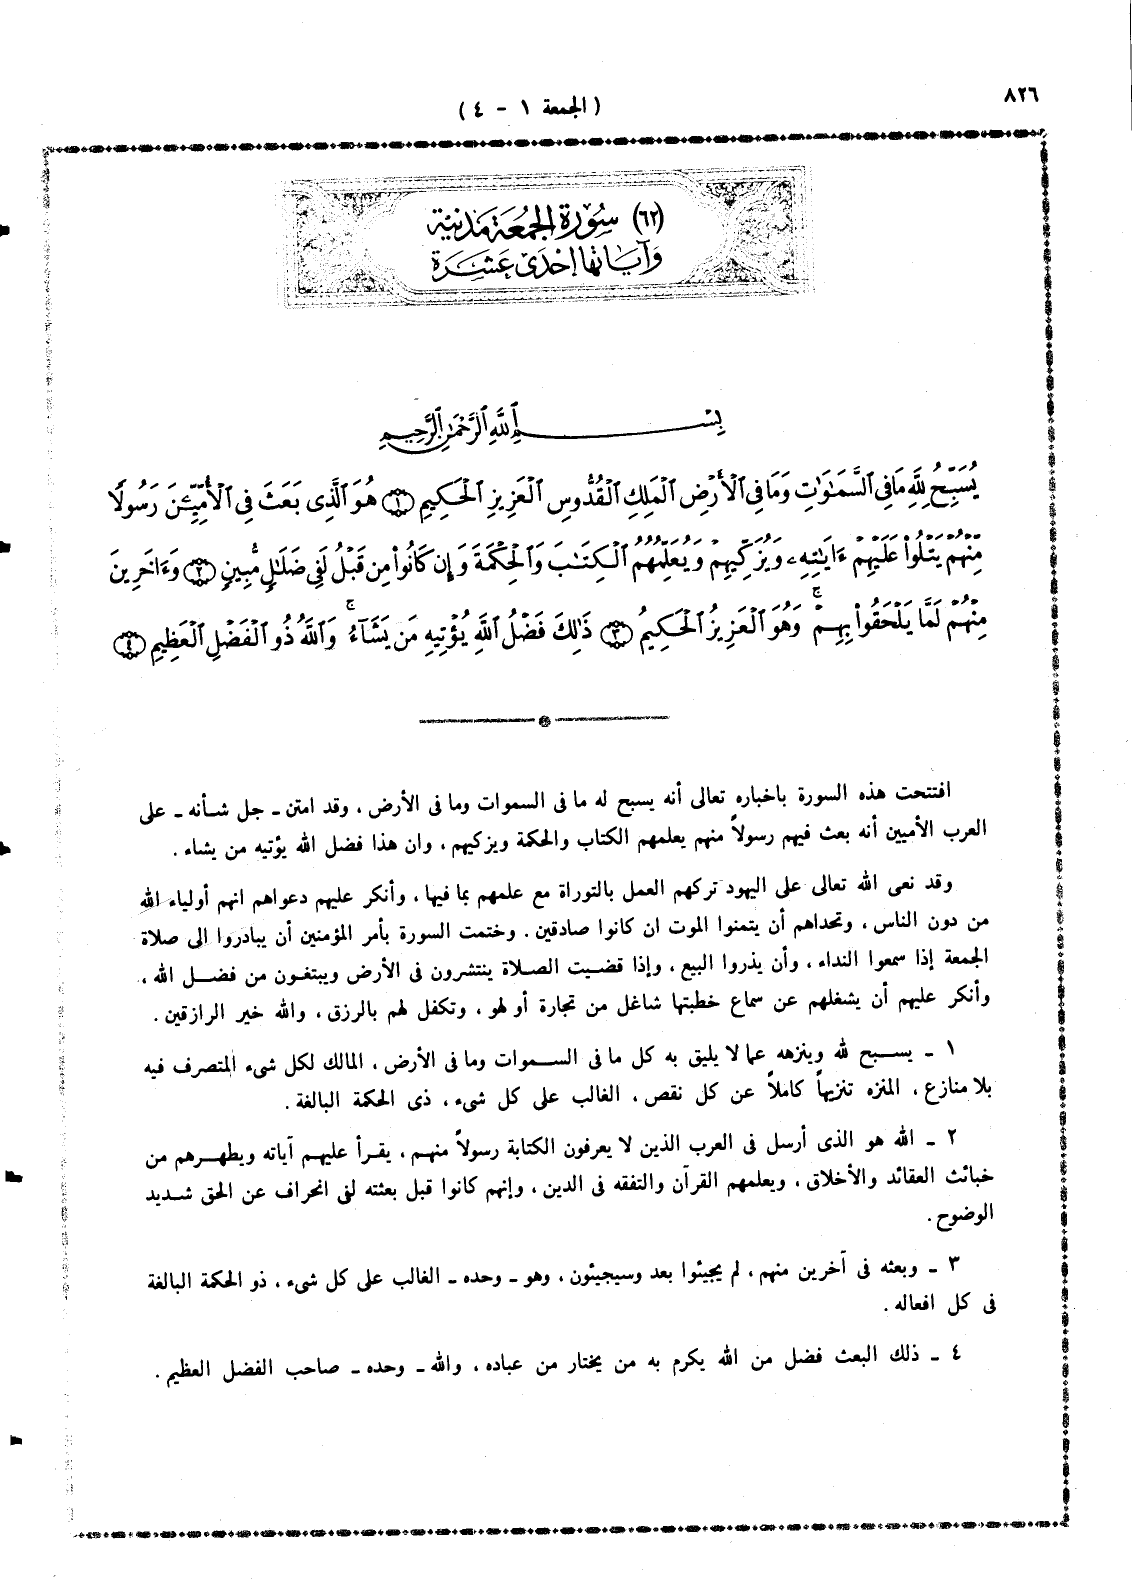 ٨٢٦
( الجمعة ١ - ٤ )
(٦٢) سُورَة الجمُعَة مَدَنيّة
وَآيَاتهَا إحْدَى عَشَرَة
بِسْمِ ٱللَّهِ ٱلرَّحْمَٰنِ ٱلرَّحِيمِ
يُسَبِّحُ لِلَّهِ مَا فِي ٱلسَّمَٰوَٰتِ وَمَا فِي ٱلْأَرْضِ ٱلْمَلِكِ ٱلْقُدُّوسِ ٱلْعَزِيزِ ٱلْحَكِيمِ ﴿١﴾ هُوَ ٱلَّذِي بَعَثَ فِي ٱلْأُمِّيِّـۧنَ رَسُولًا
مِّنْهُمْ يَتْلُوا۟ عَلَيْهِمْ ءَايَٰتِهِۦ وَيُزَكِّيهِمْ وَيُعَلِّمُهُمُ ٱلْكِتَٰبَ وَٱلْحِكْمَةَ وَإِن كَانُوا۟ مِن قَبْلُ لَفِي ضَلَٰلٍ مُّبِينٍ ﴿٢﴾ وَءَاخَرِينَ
مِنْهُمْ لَمَّا يَلْحَقُوا۟ بِهِمْ ۚ وَهُوَ ٱلْعَزِيزُ ٱلْحَكِيمُ ﴿٣﴾ ذَٰلِكَ فَضْلُ ٱللَّهِ يُؤْتِيهِ مَن يَشَآءُ ۚ وَٱللَّهُ ذُو ٱلْفَضْلِ ٱلْعَظِيمِ ﴿٤﴾
افتتحت هذه السورة باخباره تعالى أنه يسبح له ما فى السموات وما فى الأرض ، وقد امتن ـ جل شأنه ـ على
العرب الأميين أنه بعث فيهم رسولاً منهم يعلمهم الكتاب والحكمة ويزكيهم ، وان هذا فضل الله يؤتيه من يشاء .
وقد نعى الله تعالى على اليهود تركهم العمل بالتوراة مع علمهم بما فيها ، وأنكر عليهم دعواهم انهم أولياء الله
من دون الناس ، وتحداهم أن يتمنوا الموت ان كانوا صادقين . وختمت السورة بأمر المؤمنين أن يبادروا الى صلاة
الجمعة إذا سمعوا النداء ، وأن يذروا البيع ، وإذا قضيت الصلاة ينتشرون فى الأرض ويبتغون من فضل الله ،
وأنكر عليهم أن يشغلهم عن سماع خطبتها شاغل من تجارة أو لهو ، وتكفل لهم بالرزق ، والله خير الرازقين .
١ ـ يسبح لله وينزهه عما لا يليق به كل ما فى السموات وما فى الأرض ، المالك لكل شىء المتصرف فيه
بلا منازع ، المنزه تنزيهاً كاملاً عن كل نقص ، الغالب على كل شىء ، ذى الحكمة البالغة .
٢ ـ الله هو الذى أرسل فى العرب الذين لا يعرفون الكتابة رسولاً منهم ، يقرأ عليهم آياته ويطهرهم من
خبائث العقائد والأخلاق ، ويعلمهم القرآن والتفقه فى الدين ، وإنهم كانوا قبل بعثته لفى انحراف عن الحق شديد
الوضوح .
٣ ـ وبعثه فى آخرين منهم ، لم يجيئوا بعد وسيجيئون ، وهو ـ وحده ـ الغالب على كل شىء ، ذو الحكمة البالغة
فى كل افعاله .
٤ ـ ذلك البعث فضل من الله يكرم به من يختار من عباده ، والله ـ وحده ـ صاحب الفضل العظيم .